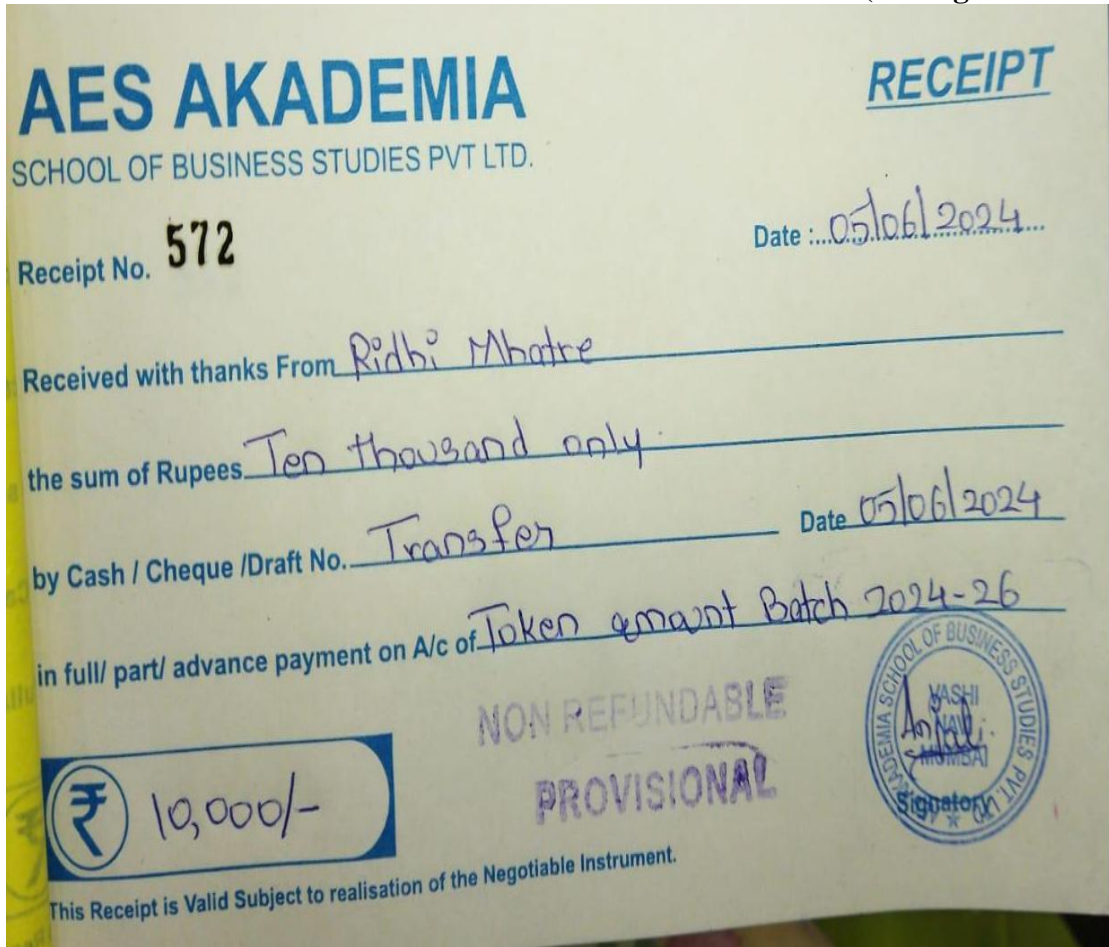 AES AKADEMIA
RECEIPT
SCHOOL OF BUSINESS STUDIES PVT LTD.
Receipt No. 572
Date :...05/06/2024...
Received with thanks From Ridhi Mhatre
the sum of Rupees Ten thousand only.
by Cash / Cheque /Draft No. Transfer Date 05/06/2024
in full/ part/ advance payment on A/c of Token amount Batch 2024-26
NON REFUNDABLE
PROVISIONAL
AKADEMIA SCHOOL OF BUSINESS STUDIES PVT. LTD
VASHI
NAVI
MUMBAI
Anjali.
Signatory
₹ 10,000/-
This Receipt is Valid Subject to realisation of the Negotiable Instrument.